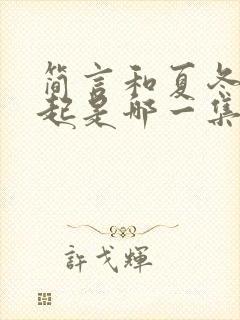 简言和夏冬
起是哪一集
許戈輝